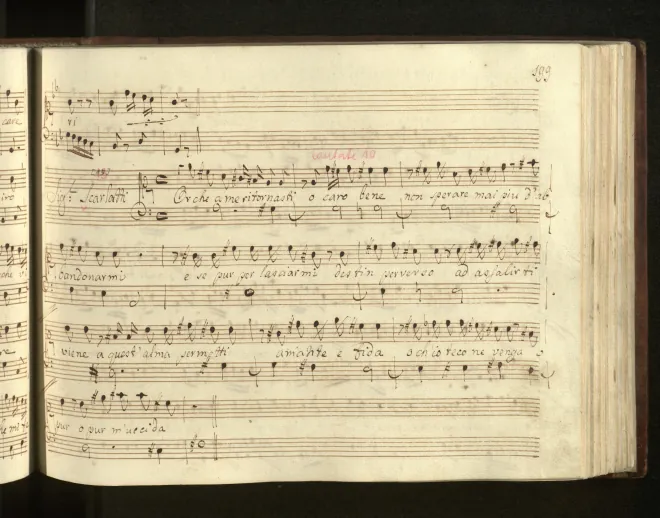 199
cantate 10
Sig.r Scarlatti Or che a me ritornasti o caro bene non sperare mai piu d'ab
candonarmi e se pur per lasciarmi destin perverso ad assalirti
viene a quest' alma permetti amante e fida o ch'io teco ne venga o
pur o pur m'uccida